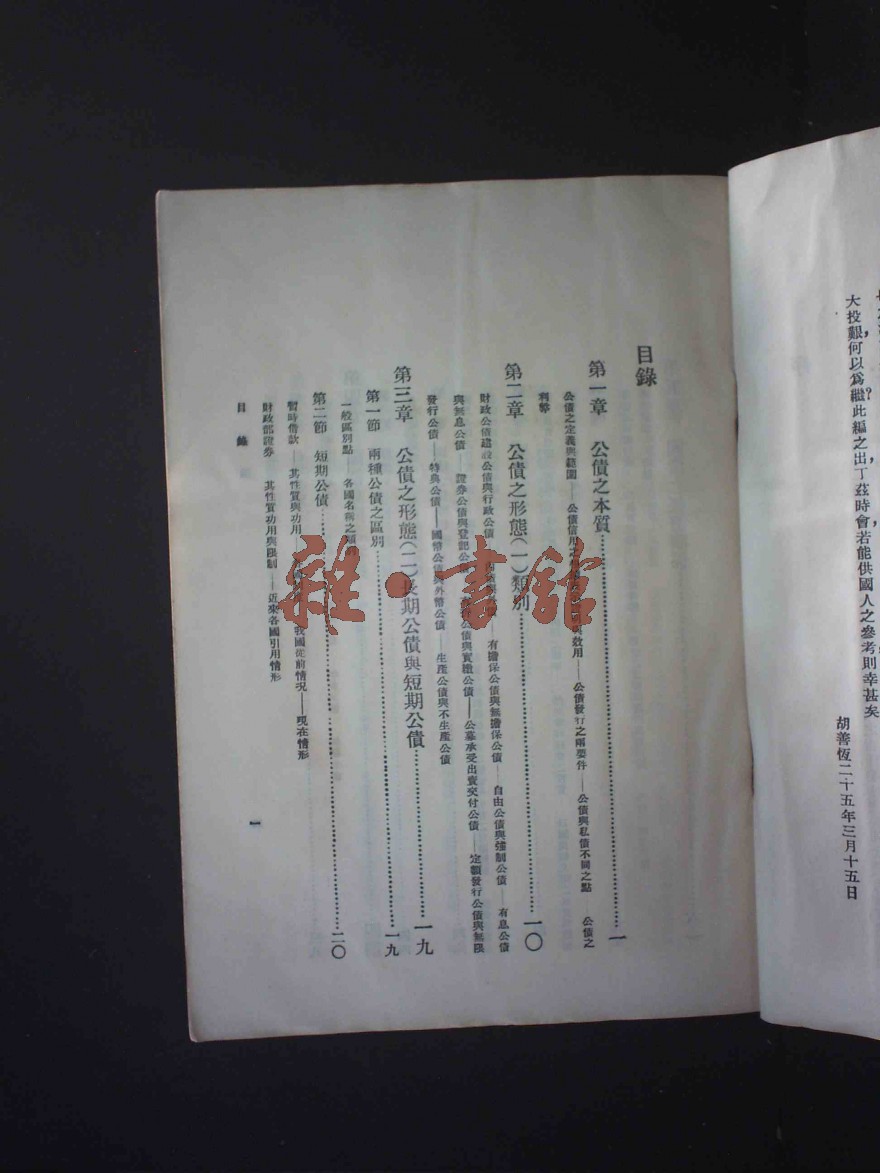 大投艱何以爲繼此編之出丁茲時會若能供國人之參考則幸甚矣
胡善恆二十五年三月十五日
目錄
第一章 公債之本質……一
公債之定義與範圍——公債信用之 與效用——公債發行之兩要件——公債與私債不同之點 公債之
利弊
第二章 公債之形態(一)類別……一〇
財政公債建設公債與行政公債 有擔保公債與無擔保公債——自由公債與強制公債——有息公債
與無息公債——證券公債與登記公債 公債與實體公債——公募承受出賣交付公債——定額發行公債與無限
發行公債——特典公債——國幣公債與外幣公債——生產公債與不生產公債
第三章 公債之形態(二)長期公債與短期公債……一九
第一節 兩種公債之區別……一九
一般區別點——各國名稱之
第二節 短期公債……二〇
暫時借款——其性質與功用 我國從前情況——現在情形
財政部證券 其性質功用與限制——近來各國引用情形
目錄
一
雜·書館